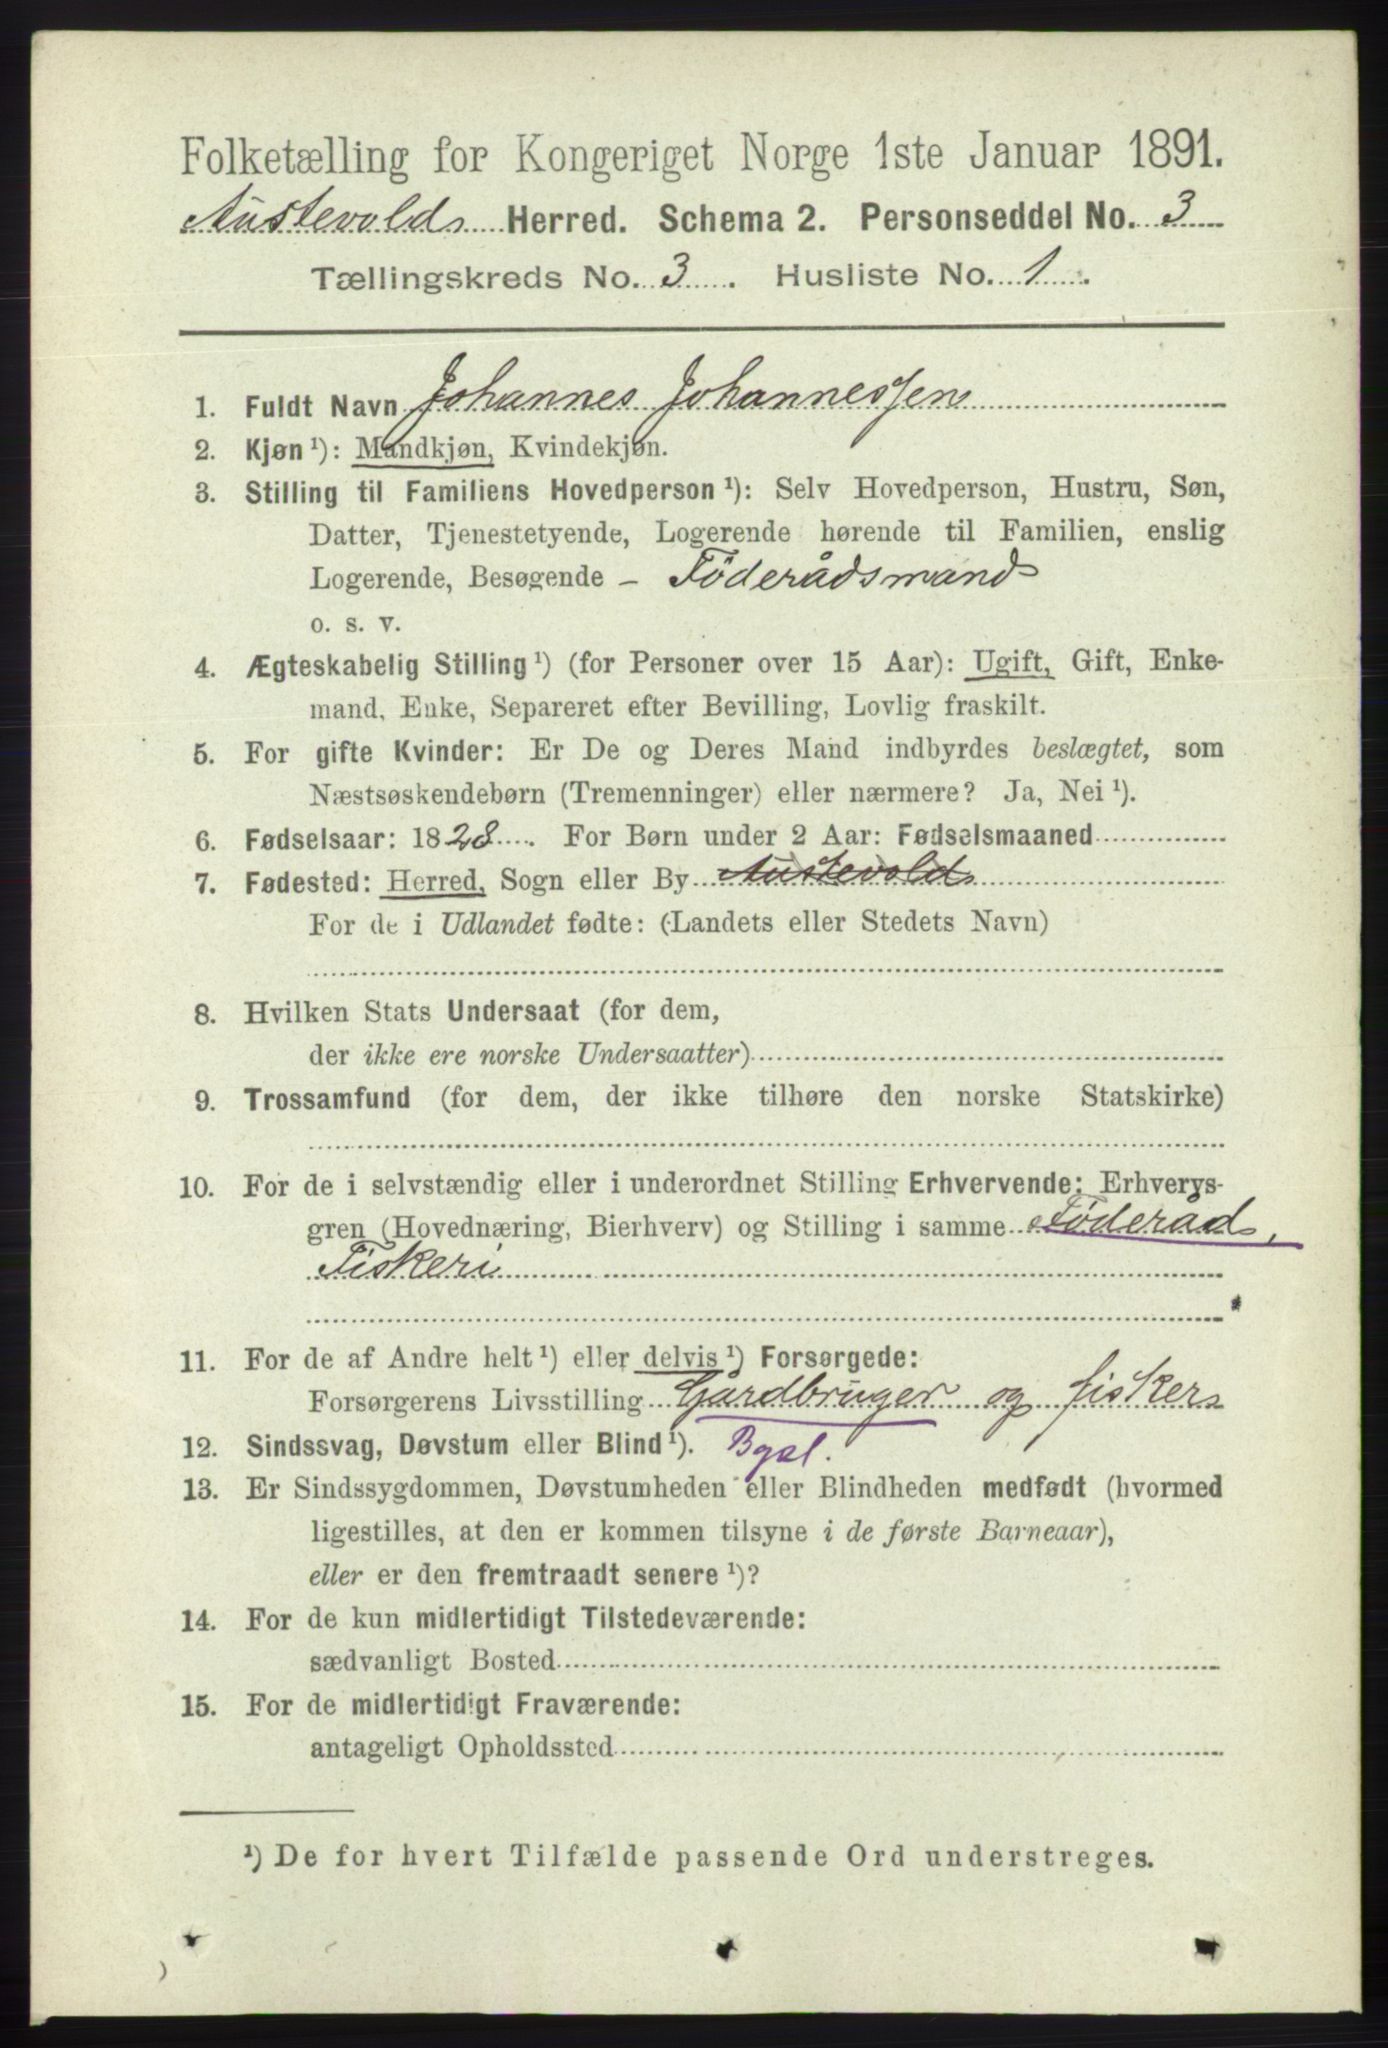 Folketælling for Kongeriget Norge 1ste Januar 1891.
Austevold Herred. Schema 2. Personseddel No. 3
Tællingskreds No. 3. Husliste No. 1.
1. Fuldt Navn Johannes Johannessen
2. Kjøn ¹): Mandkjøn, Kvindekjøn.
3. Stilling til Familiens Hovedperson ¹): Selv Hovedperson, Hustru, Søn,
Datter, Tjenestetyende, Logerende hørende til Familien, enslig
Logerende, Besøgende – Föderådsmand
o. s. v.
4. Ægteskabelig Stilling ¹) (for Personer over 15 Aar): Ugift, Gift, Enke-
mand, Enke, Separeret efter Bevilling, Lovlig fraskilt.
5. For gifte Kvinder: Er De og Deres Mand indbyrdes beslægtet, som
Næstsøskendebørn (Tremenninger) eller nærmere? Ja, Nei ¹).
6. Fødselsaar: 1828. For Børn under 2 Aar: Fødselsmaaned
7. Fødested: Herred, Sogn eller By Austevold
For de i Udlandet fødte: (Landets eller Stedets Navn)
8. Hvilken Stats Undersaat (for dem,
der ikke ere norske Undersaatter)
9. Trossamfund (for dem, der ikke tilhøre den norske Statskirke)
10. For de i selvstændig eller i underordnet Stilling Erhvervende: Erhvervs-
gren (Hovednæring, Bierhverv) og Stilling i samme Föderåd,
Fiskeri
11. For de af Andre helt ¹) eller delvis ¹) Forsørgede:
Forsørgerens Livsstilling Gårdbruger og fisker
12. Sindssvag, Døvstum eller Blind ¹).
13. Er Sindssygdommen, Døvstumheden eller Blindheden medfødt (hvormed
ligestilles, at den er kommen tilsyne i de første Barneaar),
eller er den fremtraadt senere ¹)?
14. For de kun midlertidigt Tilstedeværende:
sædvanligt Bosted
15. For de midlertidigt Fraværende:
antageligt Opholdssted
¹) De for hvert Tilfælde passende Ord understreges.